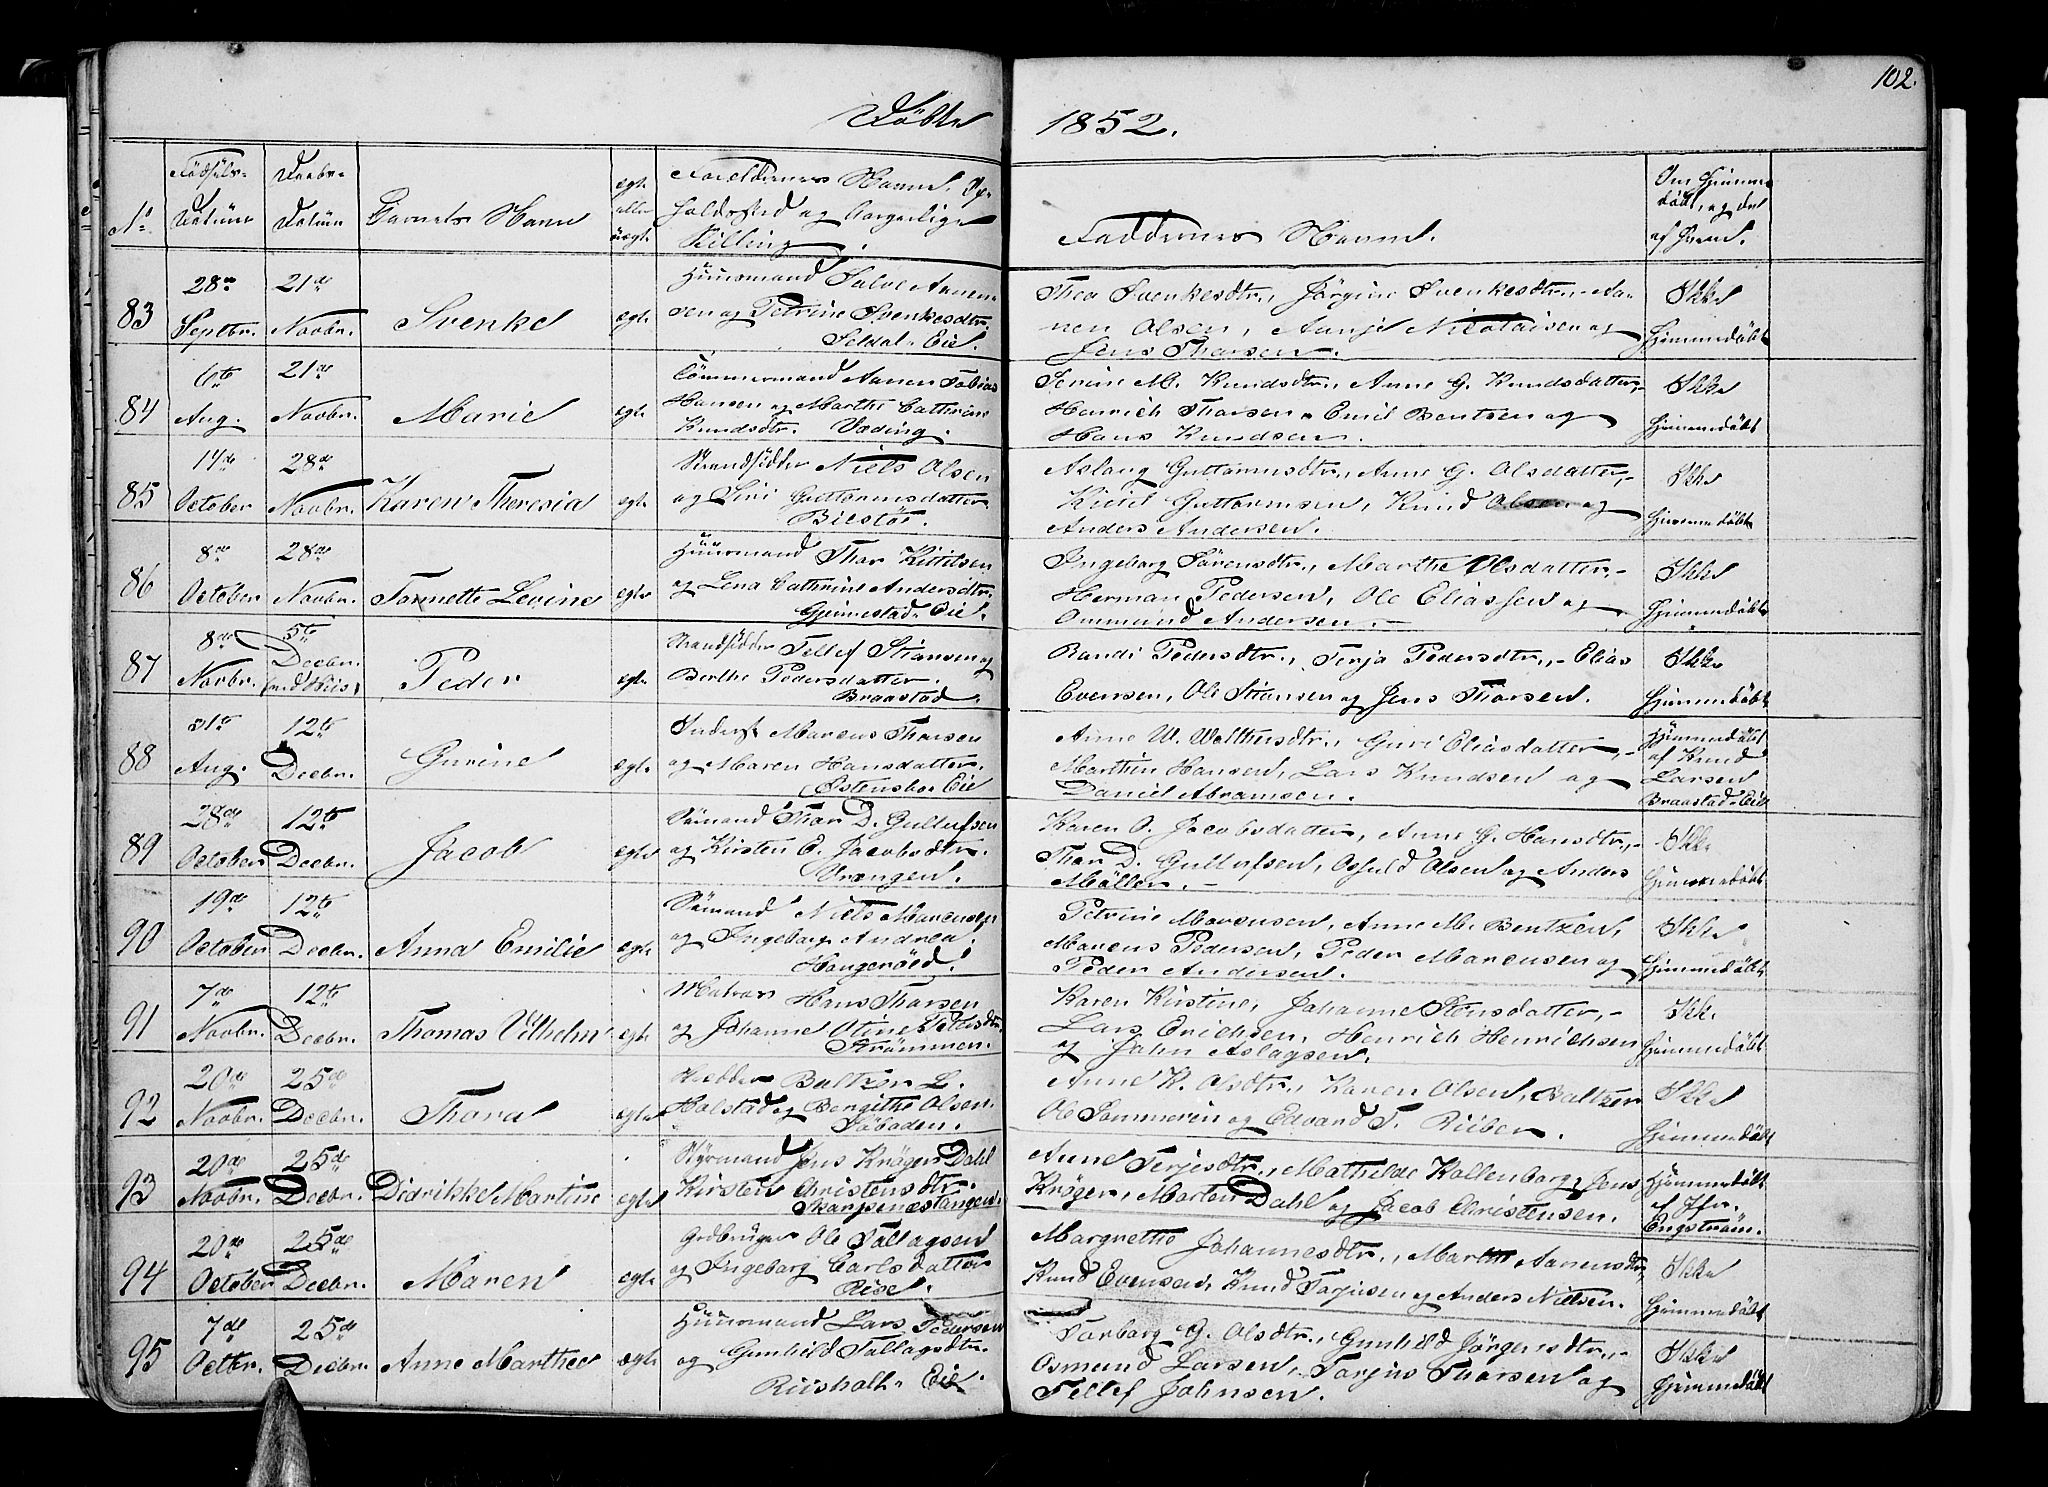 102.
Döbte 1852.
No. Födsels- Datum Daabs- Datum Barnets Navn ægte eller uægte Forældrenes Navne, Opholdssted og borgerlige Stilling. Faddernes Navne. Om Hjemmedöbt, og da af hvem.
83 28de Septbr. 21de Novbr. Svenke ægte Huusmand Salve Aanen-
sen og Petrine Svenkesdtr.
Seldal. Eie.
Thea Svenkesdtr., Jörgine Svenkesdtr., Aa-
nen Olsen, Aanje Nicolaisen og
Jens Thorsen.
Ikke
Hjemmedöbt
84 6te Aug. 21de Novbr. Marie ægte Tömmermand Aanen Tobias
Hansen og Marthe Cathrine
Knudsdtr. Vading.
Serine M. Knudsdtr., Anne G. Knudsdatter,
Henrich Thorsen, Emil Bentzen og
Hans Knudsen.
Ikke
Hjemmedöbt
85 14de October 28de Novbr. Karen Theresia ægte Strandsidder Niels Olsen
og Siri Guttormsdatter
Biestöe.
Aslaug Guttormsdtr., Anne G. Olsdatter,
Kietil Guttormsen, Knud Olsen og
Anders Andersen.
Ikke
Hjemmedöbt
86 8de October 28de Novbr. Tomette Levine ægte Huusmand Thor Kittilsen
og Lena Cathrine Andersdtr.
Gjennestad. Eie.
Ingeborg Sörensdtr., Marthe Olsdatter,
Herman Pedersen, Ole Eliassen og
Ommund Andersen.
Ikke
Hjemmedöbt
87 8de Novbr. 5te Decbr. Peder ægte Strandsidder Tellef Stiansen og
Berthe Pedersdatter.
Braastad
Randi Pedersdtr., Terja Pedersdtr., Elias
Evensen, Ole Stiansen og Jens Thorsen.
Ikke
Hjemmedöbt
88 31te Aug. 12te Decbr. Gurine ægte Inderst Marcus Thorsen
og Maren Hansdatter.
Östensbo. Eie
Anne W. Wolthersdtr., Guri Eliasdatter,
Marthin Hansen, Lars Knudsen og
Daniel Abramsen.
Hjemmedöbt
af Knud
Larsen
Braastad-Eie
89 28de October 12te Decbr. Jacob ægte Sömand Thor D. Gullufsen
og Kirsten E. Jacobsdtr.
Vrængen.
Karen O. Jacobsdatter, Anne G. Hansdtr.,
Thor D. Gullufsen, Osfuld Olsen og Anders
Möller.
Ikke
Hjemmedöbt
90 19de October 12te Decbr. Anna Emilie ægte Sömand Niels Marcusen
og Ingeborg Andrea.
Hougeröed.
Petrine Marcusen, Anne M. Bentzen,
Marcus Pedersen, Peder Marcusen og
Peder Andersen.
Ikke
Hjemmedöbt
91 7de Novbr. 12te Decbr. Thomas Vilhelm ægte Matros Hans Thorsen
og Johanne Otine Petersdtr.
Strömmen.
Karen Kirstine, Johanne Stensdatter,
Lars Erichsen, Henrich Henrichsen
og John Aslagsen.
Ikke
Hjemmedöbt
92 20de Novbr. 25de Decbr. Thora ægte Baltzer L.
Holstad og Bergithe Olsen.
Söboden.
Anne K. Olsdtr., Karen Olsen, Baltzer
Ole Sommeren og Edvard T. Riiber.
Ikke
Hjemmedöbt
93 20de Novbr. 25de Decbr. Didrikke Martine ægte Styrmand Jens Kröger Dahl
Kirsten Christensdtr.
Skarpsnæstangen.
Anne Terjesdtr., Mathilde Kallenborg, Jens
Kröger, Morten Dahl og Jacob Christensen.
Hjemmedöbt
af Jfr.
Engström.
94 20de October 25de Decbr. Maren ægte Grdbruger Ole Tallagsen
og Ingeborg Carlsdatter
Rise.
Margrethe Johannesdtr., Marthe Aanensdtr,
Knud Evensen, Knud Torjusen og Anders Nielsen.
Ikke
Hjemmedöbt
95 7de Octbr. 25de Decbr. Anne Marthea ægte Huusmand Lars Pedersen
og Gunhild Tallagsdtr.
Riisholt. Eie.
Torborg G. Olsdtr., Gunhild Jörgensdtr.,
Osmund Larsen, Torjus Thorsen og
Tellef Johnsen.
Ikke
Hjemmedöbt